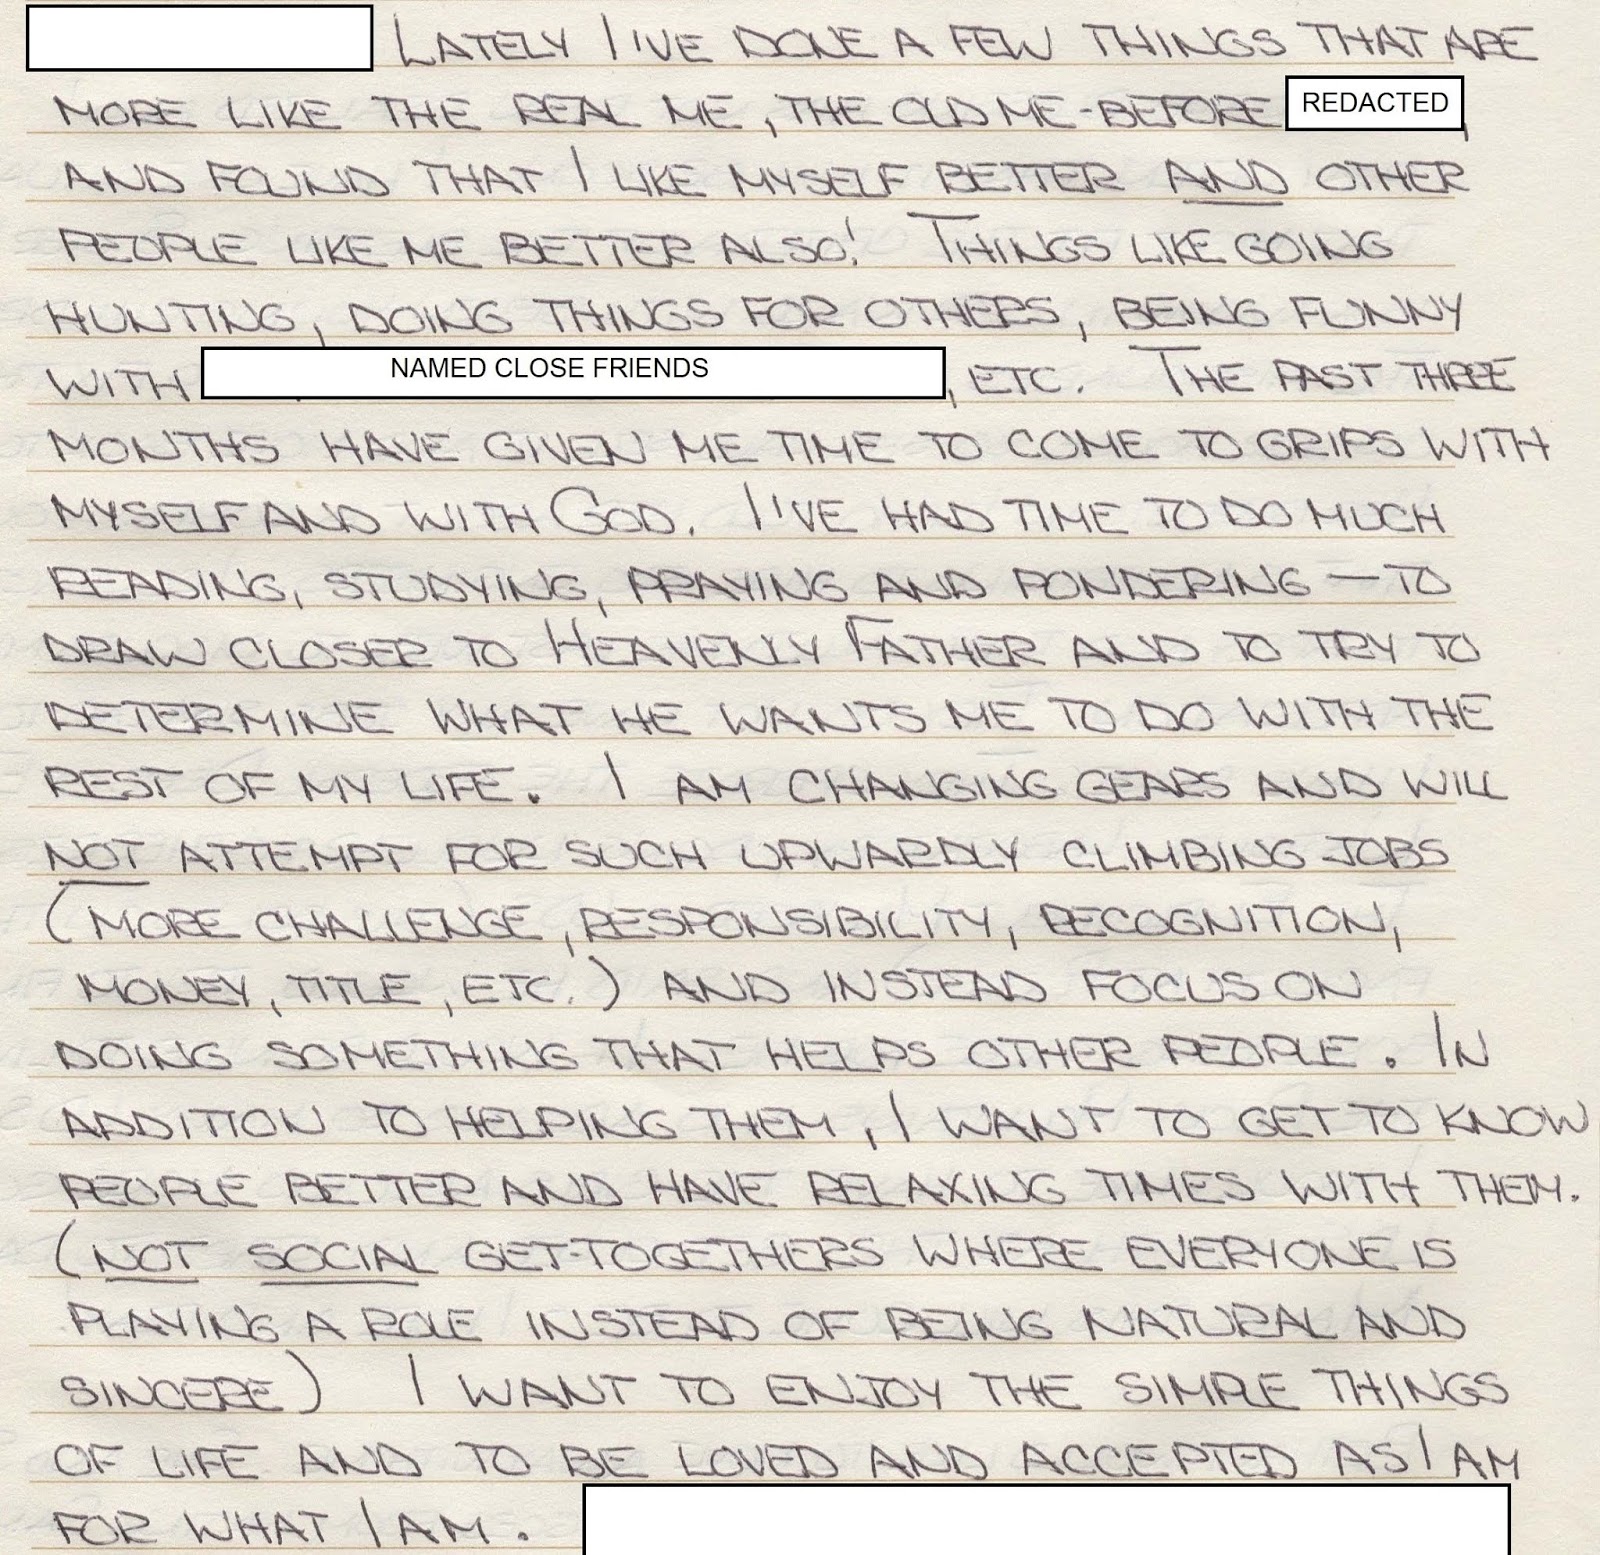 LATELY I'VE DONE A FEW THINGS THAT ARE
MORE LIKE THE REAL ME, THE OLD ME-BEFORE REDACTED,
AND FOUND THAT I LIKE MYSELF BETTER AND OTHER
PEOPLE LIKE ME BETTER ALSO! THINGS LIKE GOING
HUNTING, DOING THINGS FOR OTHERS, BEING FUNNY
WITH NAMED CLOSE FRIENDS, ETC. THE PAST THREE
MONTHS HAVE GIVEN ME TIME TO COME TO GRIPS WITH
MYSELF AND WITH GOD. I'VE HAD TIME TO DO MUCH
READING, STUDYING, PRAYING AND PONDERING — TO
DRAW CLOSER TO HEAVENLY FATHER AND TO TRY TO
DETERMINE WHAT HE WANTS ME TO DO WITH THE
REST OF MY LIFE. I AM CHANGING GEARS AND WILL
NOT ATTEMPT FOR SUCH UPWARDLY CLIMBING JOBS
(MORE CHALLENGE, RESPONSIBILITY, RECOGNITION,
MONEY, TITLE, ETC.) AND INSTEAD FOCUS ON
DOING SOMETHING THAT HELPS OTHER PEOPLE. IN
ADDITION TO HELPING THEM, I WANT TO GET TO KNOW
PEOPLE BETTER AND HAVE RELAXING TIMES WITH THEM.
(NOT SOCIAL GET-TOGETHERS WHERE EVERYONE IS
PLAYING A ROLE INSTEAD OF BEING NATURAL AND
SINCERE) I WANT TO ENJOY THE SIMPLE THINGS
OF LIFE AND TO BE LOVED AND ACCEPTED AS I AM
FOR WHAT I AM.